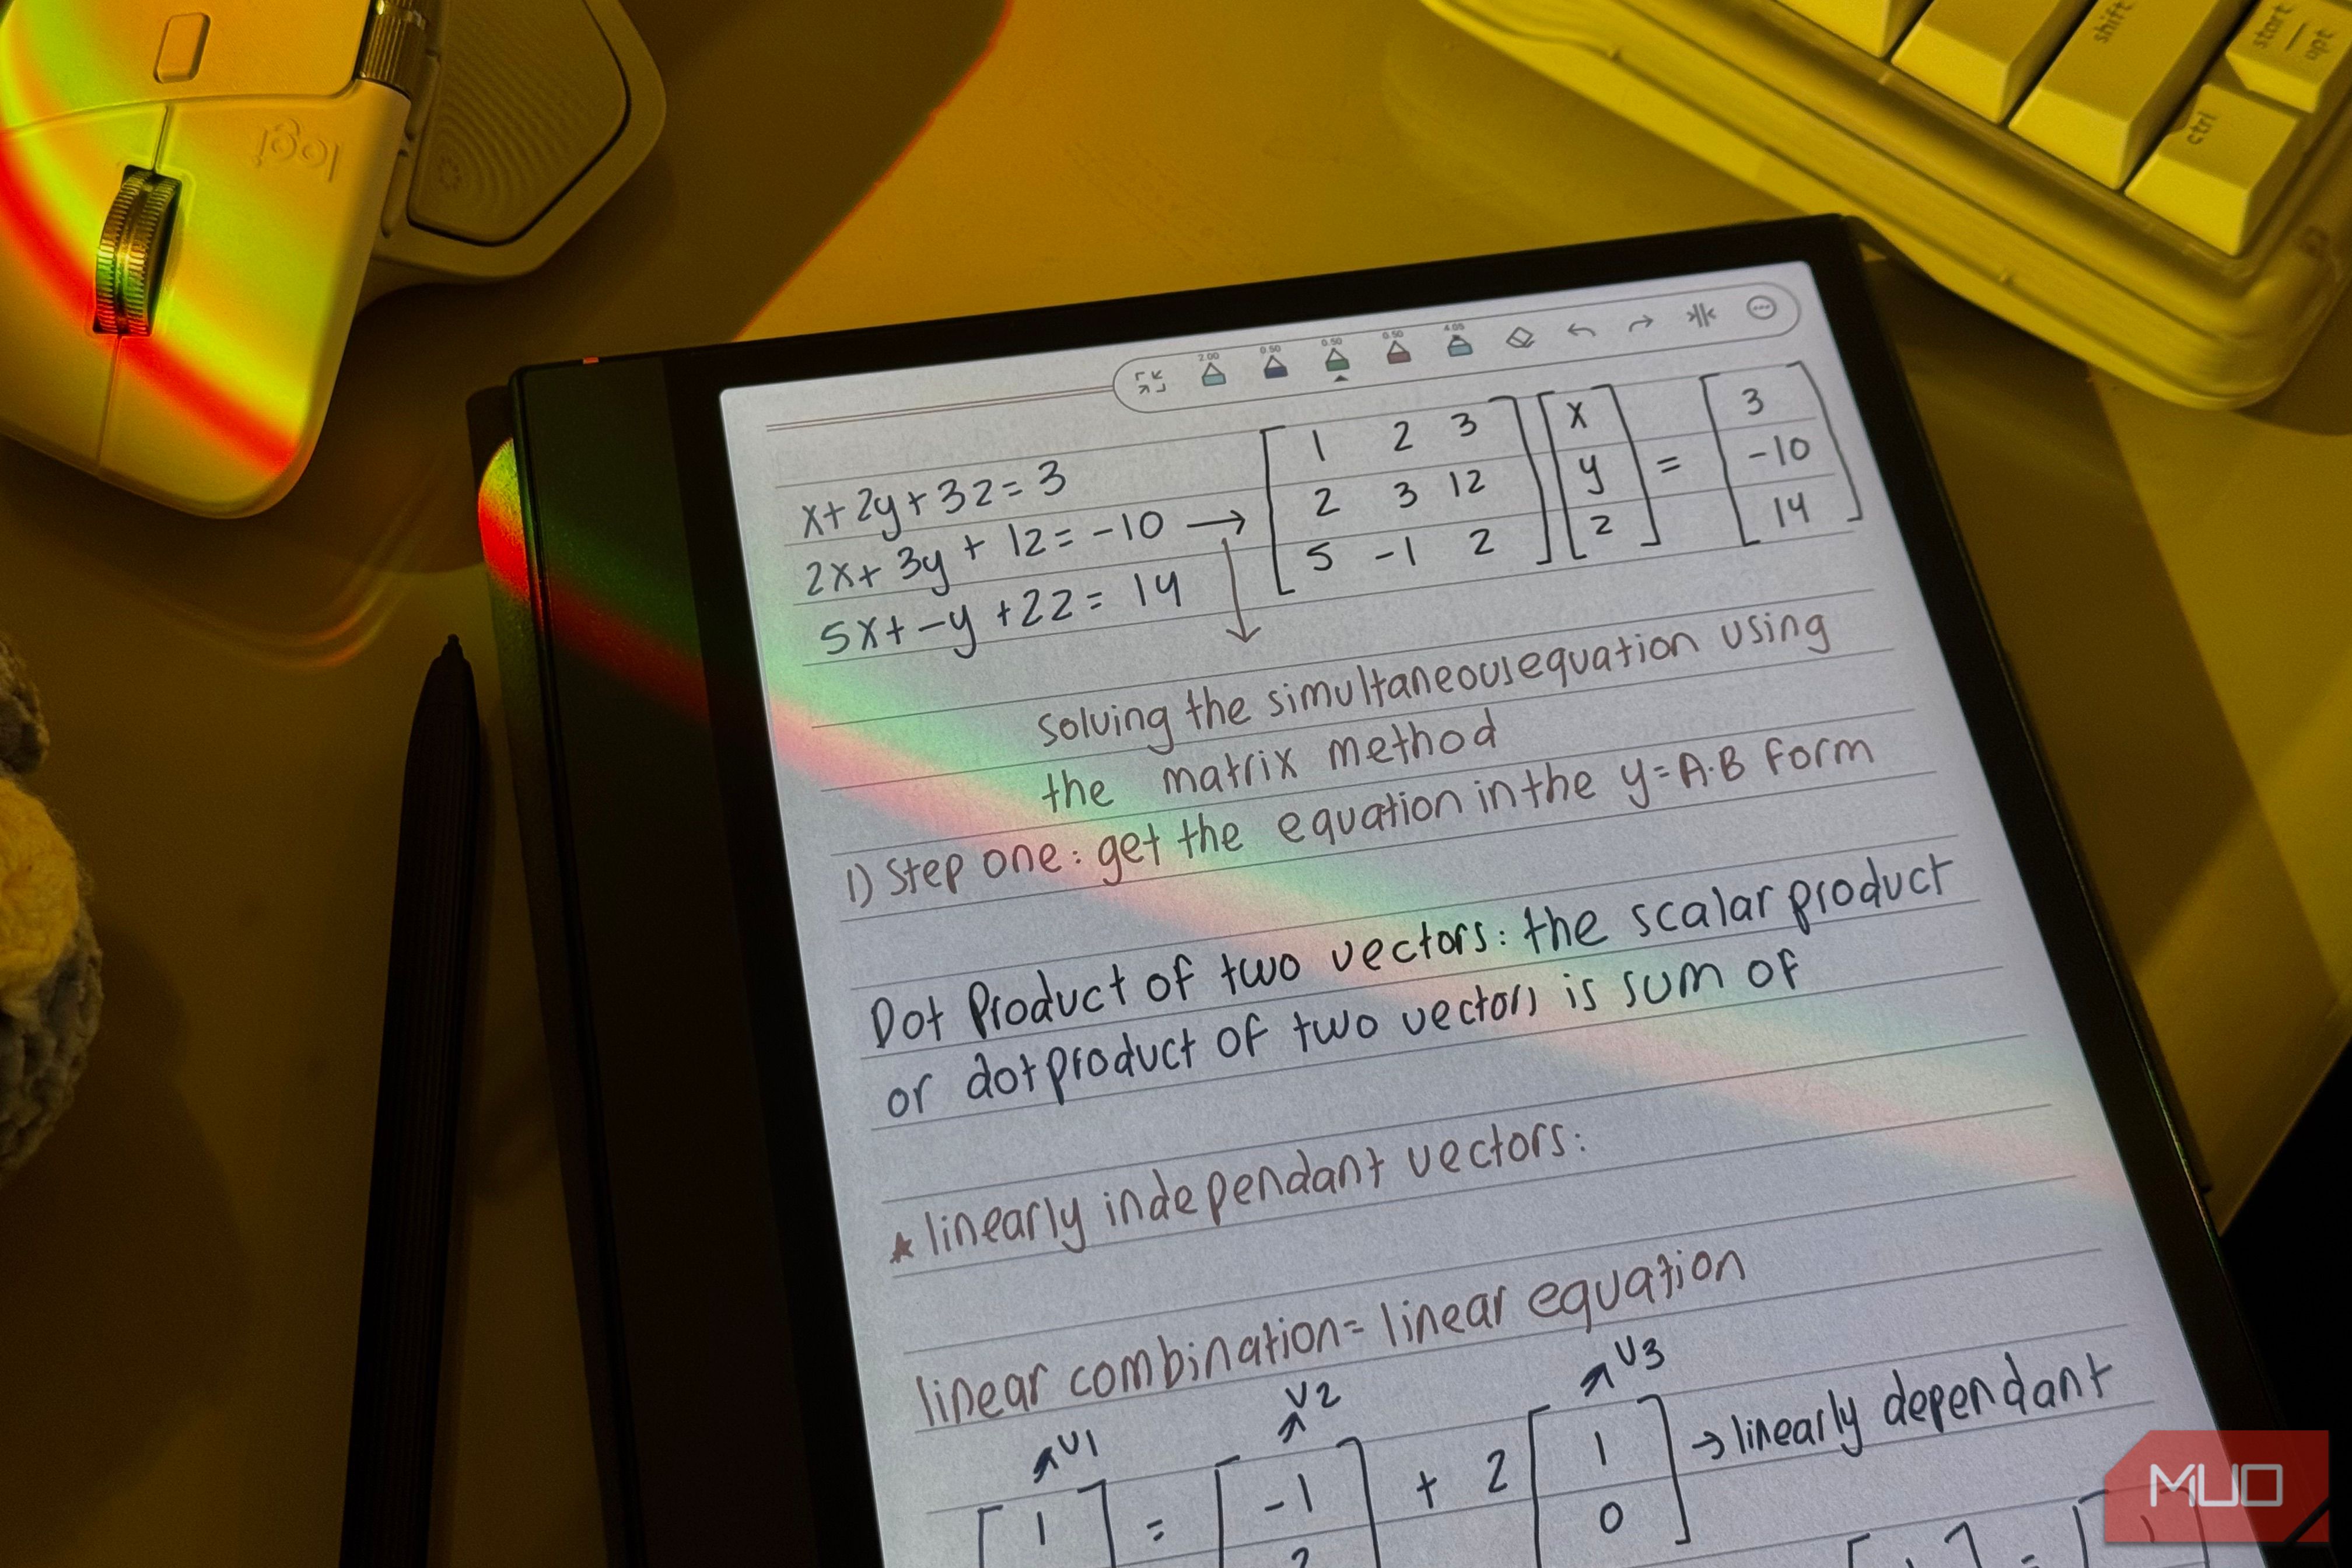 logi
shift
start
opt
ctrl
2.00 0.50 0.50 0.50 4.05
x+2y+3z=3
2x+3y+1z=-10 →
5x+-y+2z=14
1 2 3
2 3 12
5 -1 2
x
y
z
=
3
-10
14
solving the simultaneous equation using
the matrix method
1) Step one: get the equation in the y=A·B form
Dot Product of two vectors: the scalar product
or dot product of two vectors is sum of
★ linearly independant vectors:
linear combination= linear equation
v1 v2 v3
1 = -1 + 2 1 → linearly dependant
0
MUO